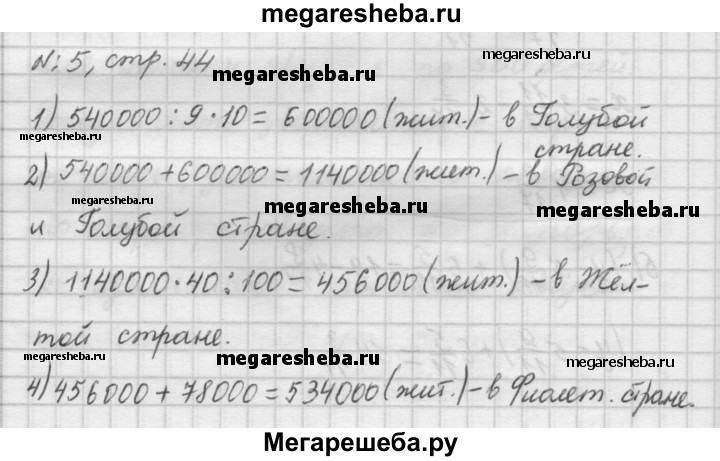 megaresheba.ru
N: 5, стр. 44
megaresheba.ru
megaresheba.ru
1) 540000 : 9 · 10 = 600000 (жит.) – в Голубой
megaresheba.ru
стране.
2) 540000 + 600000 = 1140000 (жит.) – в Розовой
megaresheba.ru
megaresheba.ru
и Голубой стране.
3) 1140000 · 40 : 100 = 456000 (жит.) – в Жёл-
той стране.
megaresheba.ru
megaresheba.ru
megaresheba.ru
4) 456000 + 78000 = 534000 (жит.) – в Фиолет. стране.
Мегарешеба.ру